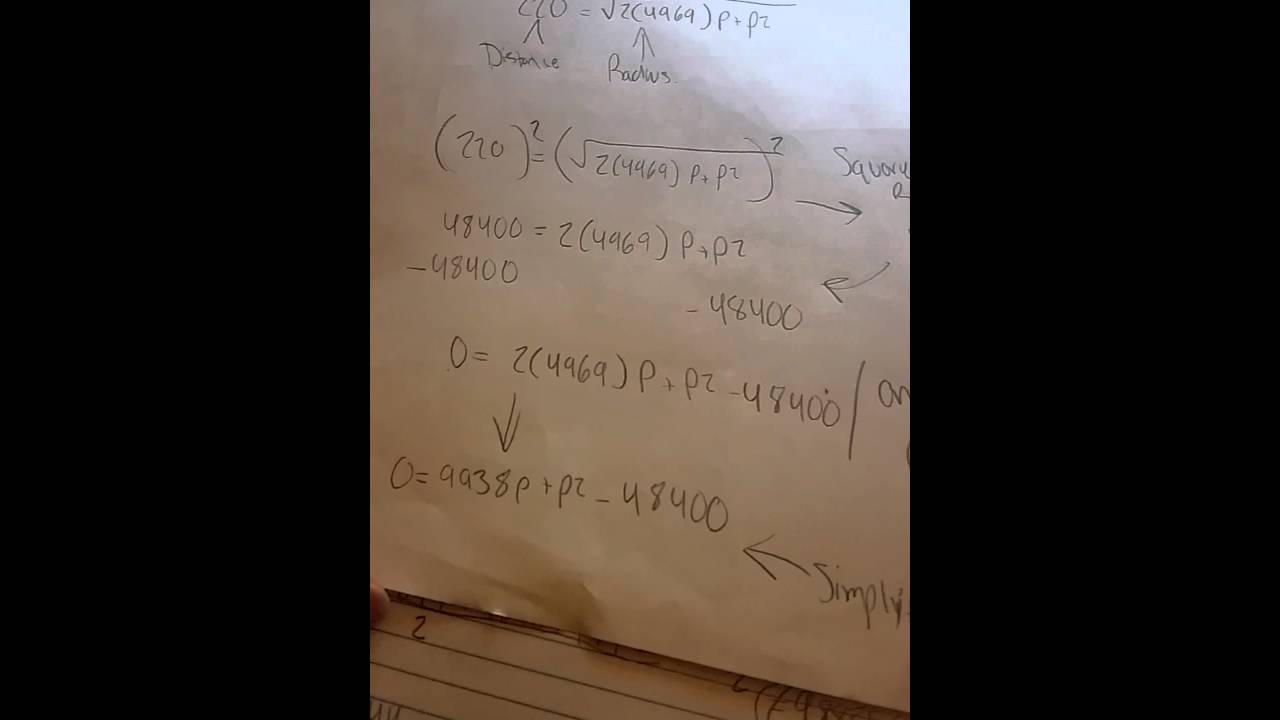 220 = √2(4969)p+p2
Distance Radius.
(220)2 = (√2(4969)p+p2)2
48400 = 2(4969)p+p2
-48400 -48400
0= 2(4969)p+p2-48400
0=9938p+p2-48400
2